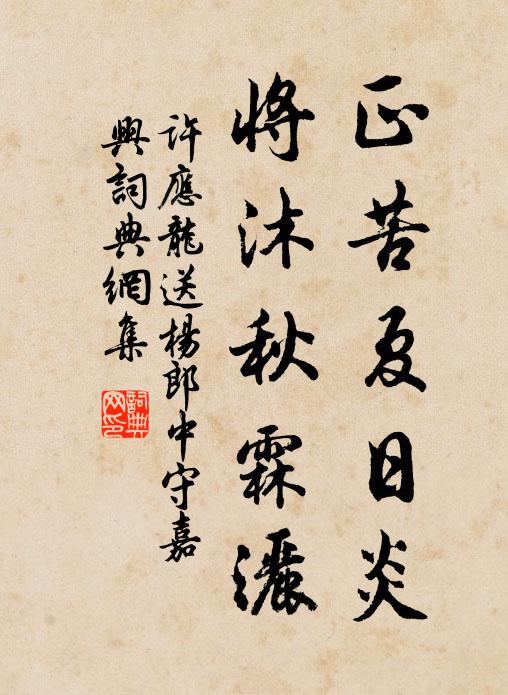 正苦夏日炎
将沐秋霖灑
許應龍送楊郎中守嘉
興詞典網集
詞典网印